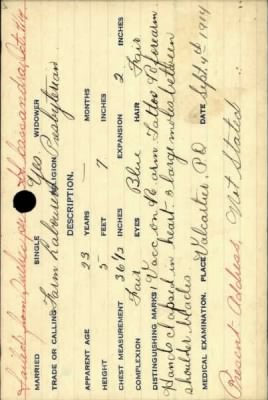 Sailed from Quebec per H. Cassandra, Oct. 3/14
MARRIED SINGLE Yes WIDOWER
TRADE OR CALLING Farm Labourer RELIGION Presbyterian
DESCRIPTION.
APPARENT AGE 23 YEARS MONTHS
HEIGHT 5 FEET 7 INCHES
CHEST MEASUREMENT 36½ INCHES EXPANSION 2 INCHES
COMPLEXION Fair EYES Blue HAIR Fair
DISTINGUISHING MARKS 1 Vacc on R. arm Tattoo R forearm
Hands clasped in heart. 3 large moles between
shoulder blades
MEDICAL EXAMINATION. PLACE Valcartier, P.Q DATE Sept. 4th 1914
Present Address. Not Stated